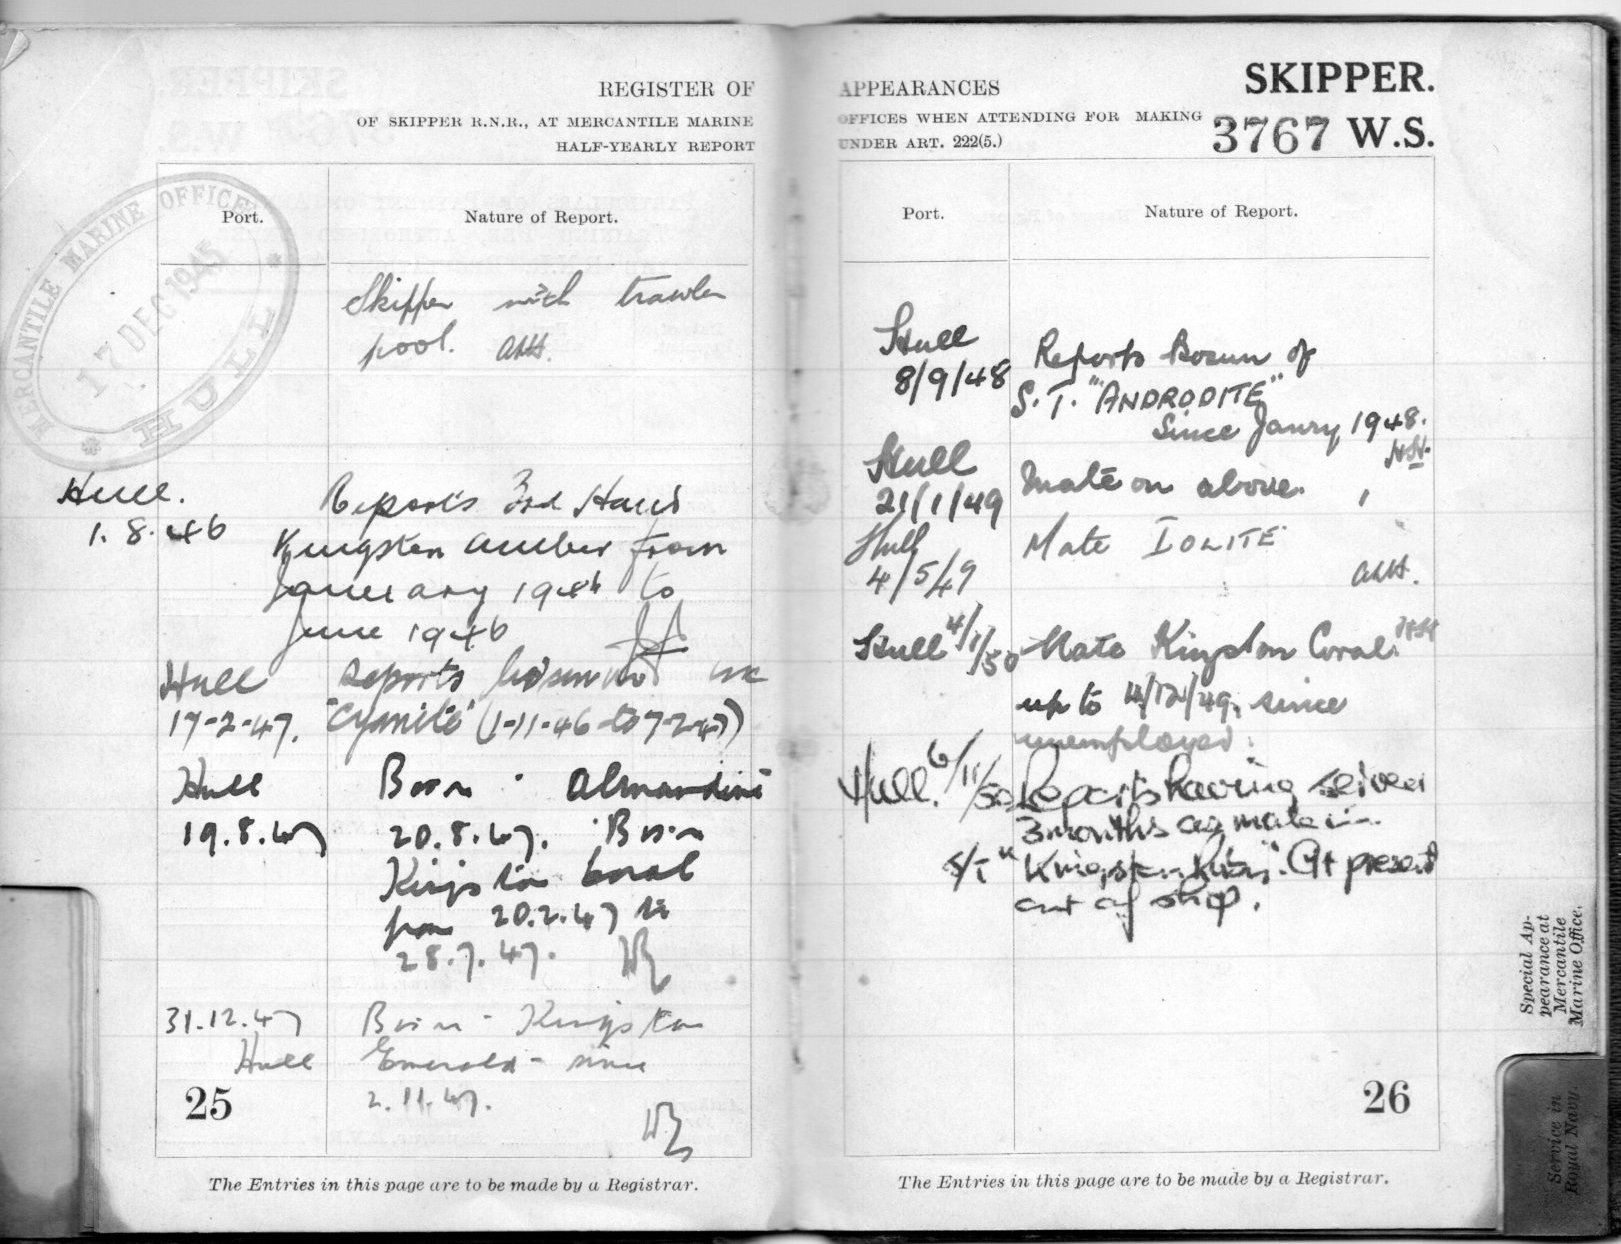 REGISTER OF
OF SKIPPER R.N.R., AT MERCANTILE MARINE
HALF-YEARLY REPORT
Port. Nature of Report.
MERCANTILE MARINE OFFICE
17 DEC 1945
HULL
Skipper with trawler
pool.
Hull. Reports 3rd Hand
1.8.46 Kingston Amber from
January 1946 to
June 1946
Hull Reports bosun
17-2-47. "Cyanite" (1-11-46 to 7-2-47)
Hull Bosn. Almandine
19.8.47 20.8.47. Bosn
Kingston Coral
from 20.2.47 to
28.7.47.
31.12.47 Bosn - Kingston
Hull Emerald - since
2.11.47.
25
The Entries in this page are to be made by a Registrar.
APPEARANCES
SKIPPER.
OFFICES WHEN ATTENDING FOR MAKING
3767 W.S.
UNDER ART. 222(5.)
Port. Nature of Report.
Hull Reports Bosun of
8/9/48 S.T. "ANDRODITE"
Since Janry 1948.
Hull Mate on above.
21/1/49
Hull Mate IOLITE
4/5/49
Hull 4/1/50 Mate Kingston Coral
up to 4/12/49, since
unemployed.
Hull. 6/11/50 Reports having served
3 months as mate in
S/T "Kingston". At present
out of ship.
26
The Entries in this page are to be made by a Registrar.
Special Ap-
pearance at
Mercantile
Marine Office.
Service in
Royal Navy.